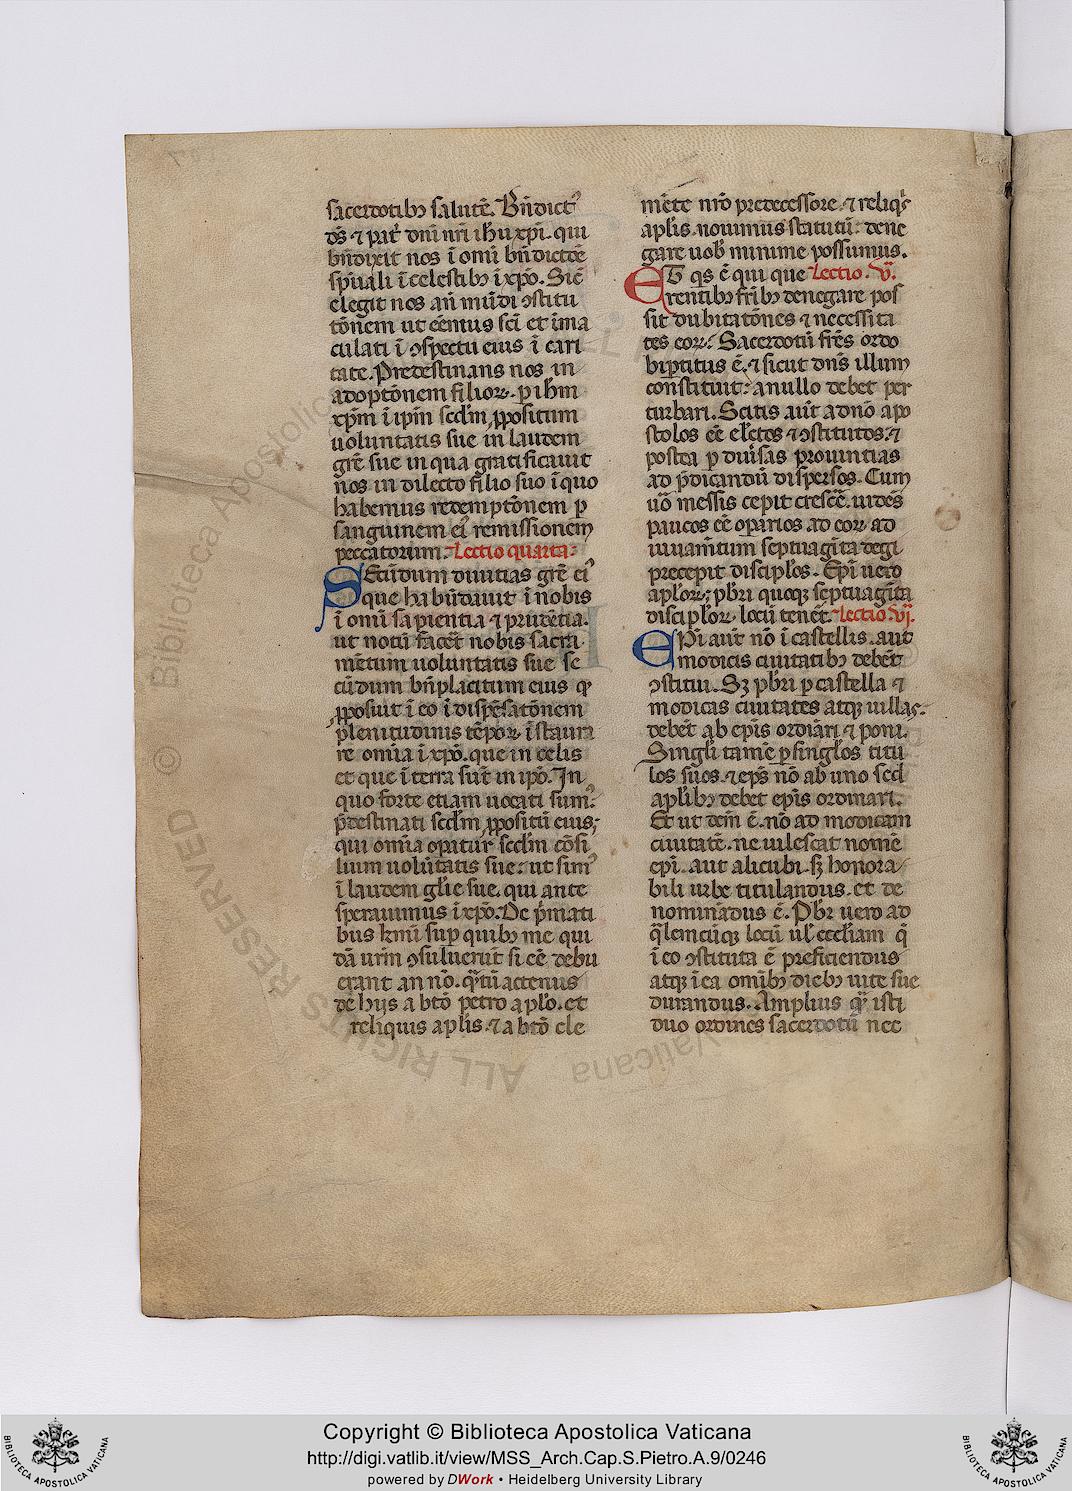 sacerdotibꝫ salutē. Bn̄dict᷒
ds̄ ⁊ pat͛ dn̄i nr̄i ih̄u xp̄i. qui
bn̄dixit nos ī om̄i bn̄dictōe
sp̄uali ī celestibꝫ ī xp̄o. Sic̄
elegit nos an̄ mūdi ↄstitu
tōnem ut eēmus sc̄i et īma
culati ī ↄspectu eius ī cari
tate. Predestinans nos in
adoptōnem filioꝝ. ꝑ ih̄m
xp̄m ī ip̄m scd̄m ꝓpositum
uoluntatis sue in laudem
gr̄e sue in qua gratificauit
nos in dilecto filio suo ī quo
habemus redemptōnem ꝑ
sanguinem ei᷒ remissionem
peccatorum. Lectio quarta.
SEcūdum diuitias gr̄e ei᷒
que habūdauit ī nobis
ī om̄i sapientia ⁊ prudētia.
ut notū facet͛ nobis sacra
mētum uoluntatis sue se
cūdum bn̄placitum eius q̄
ꝓposuit ī eo ī dispēsatōnem
plenitudinis tēpoꝝ. īstaura
re omīa ī xp̄o. que in celis
et que ī terra sūt in ip̄o. In
quo forte etiam uocati sum᷒.
p̄destinati scd̄m ꝓpositū eius,
qui omīa opatur scd̄m cōsi
lium uolūtatis sue. ut sim᷒
ī laudem gl̄ie sue. qui ante
sperauimus ī xp̄o. De p̄mati
bus kmi᷒ sup quibꝫ me qui
dā urm̄ ↄsuluerūt si eē debu
erant an nō. q̄tū actenus
de hijs a btō petro aplo. et
reliquis aplīs. ⁊ a btō cle
mēte nr̄o predecessore. ⁊ reliq͛s
aplīs. nouimus statutū. dene
gare uob᷒ minime possumus.
ET qs̄ ē qui que Lectio .v͛.
rentibꝫ fr̄ibꝫ denegare pos
sit dubitatōnes ⁊ necessita
tes eoꝝ. Sacerdotū fr̄es ordo
bip̄titus ē. ⁊ sicut dn̄s illum
constituit. a nullo debet per
turbari. Scitis aūt a dn̄o apo
stolos eē elc̄tos ⁊ ↄstitutos. ⁊
postea ꝑ diuīsas prouintias
ad p̄dicandū dispersos. Cum
uō messis cepit crescē͛. uidēs
paucos eē opарios ad eoꝝ ad
iuuam̄tum septuagīta delegi
precepit discipl̄os. Ep̄i uero
apl̄oꝝ. pb̄ri quoqꝫ septuagīta
discipl̄oꝝ. locū tenēt. Lectio .vj.
EPi aūt nō ī castellis. aut
modicis ciuitatibꝫ debēt
ↄstitui. Sꝫ pb̄ri ꝑ castella ⁊
modicas ciuitates atqꝫ uillas.
debēt ab ep̄is ordīari ⁊ poni.
Singl̄i tamē ꝑ singl̄os titu
los suos. ⁊ ep̄s nō ab uno sed
a plīibꝫ debet ep̄is ordinari.
Et ut dcm̄ ē. nō ad modicam
ciuitatē. ne uilescat nomē
ep̄i. aut alicubi. sꝫ honora
bili urbe titulandus. et de
nominādus ē. Pb̄r uero ad
q̄lemcūqꝫ locū ul̄ eccl̄iam q̄
ī eo ↄstituta ē preficiendus
atqꝫ ī ea omībꝫ diebꝫ uite sue
duraturus. Amplius q̄ isti
duo ordines sacerdotū nec
© Biblioteca Apostolica Vaticana
ALL RIGHTS RESERVED
Copyright © Biblioteca Apostolica Vaticana
http://digi.vatlib.it/view/MSS_Arch.Cap.S.Pietro.A.9/0246
powered by DWork • Heidelberg University Library
BIBLIOTECA APOSTOLICA VATICANA
BIBLIOTECA APOSTOLICA VATICANA